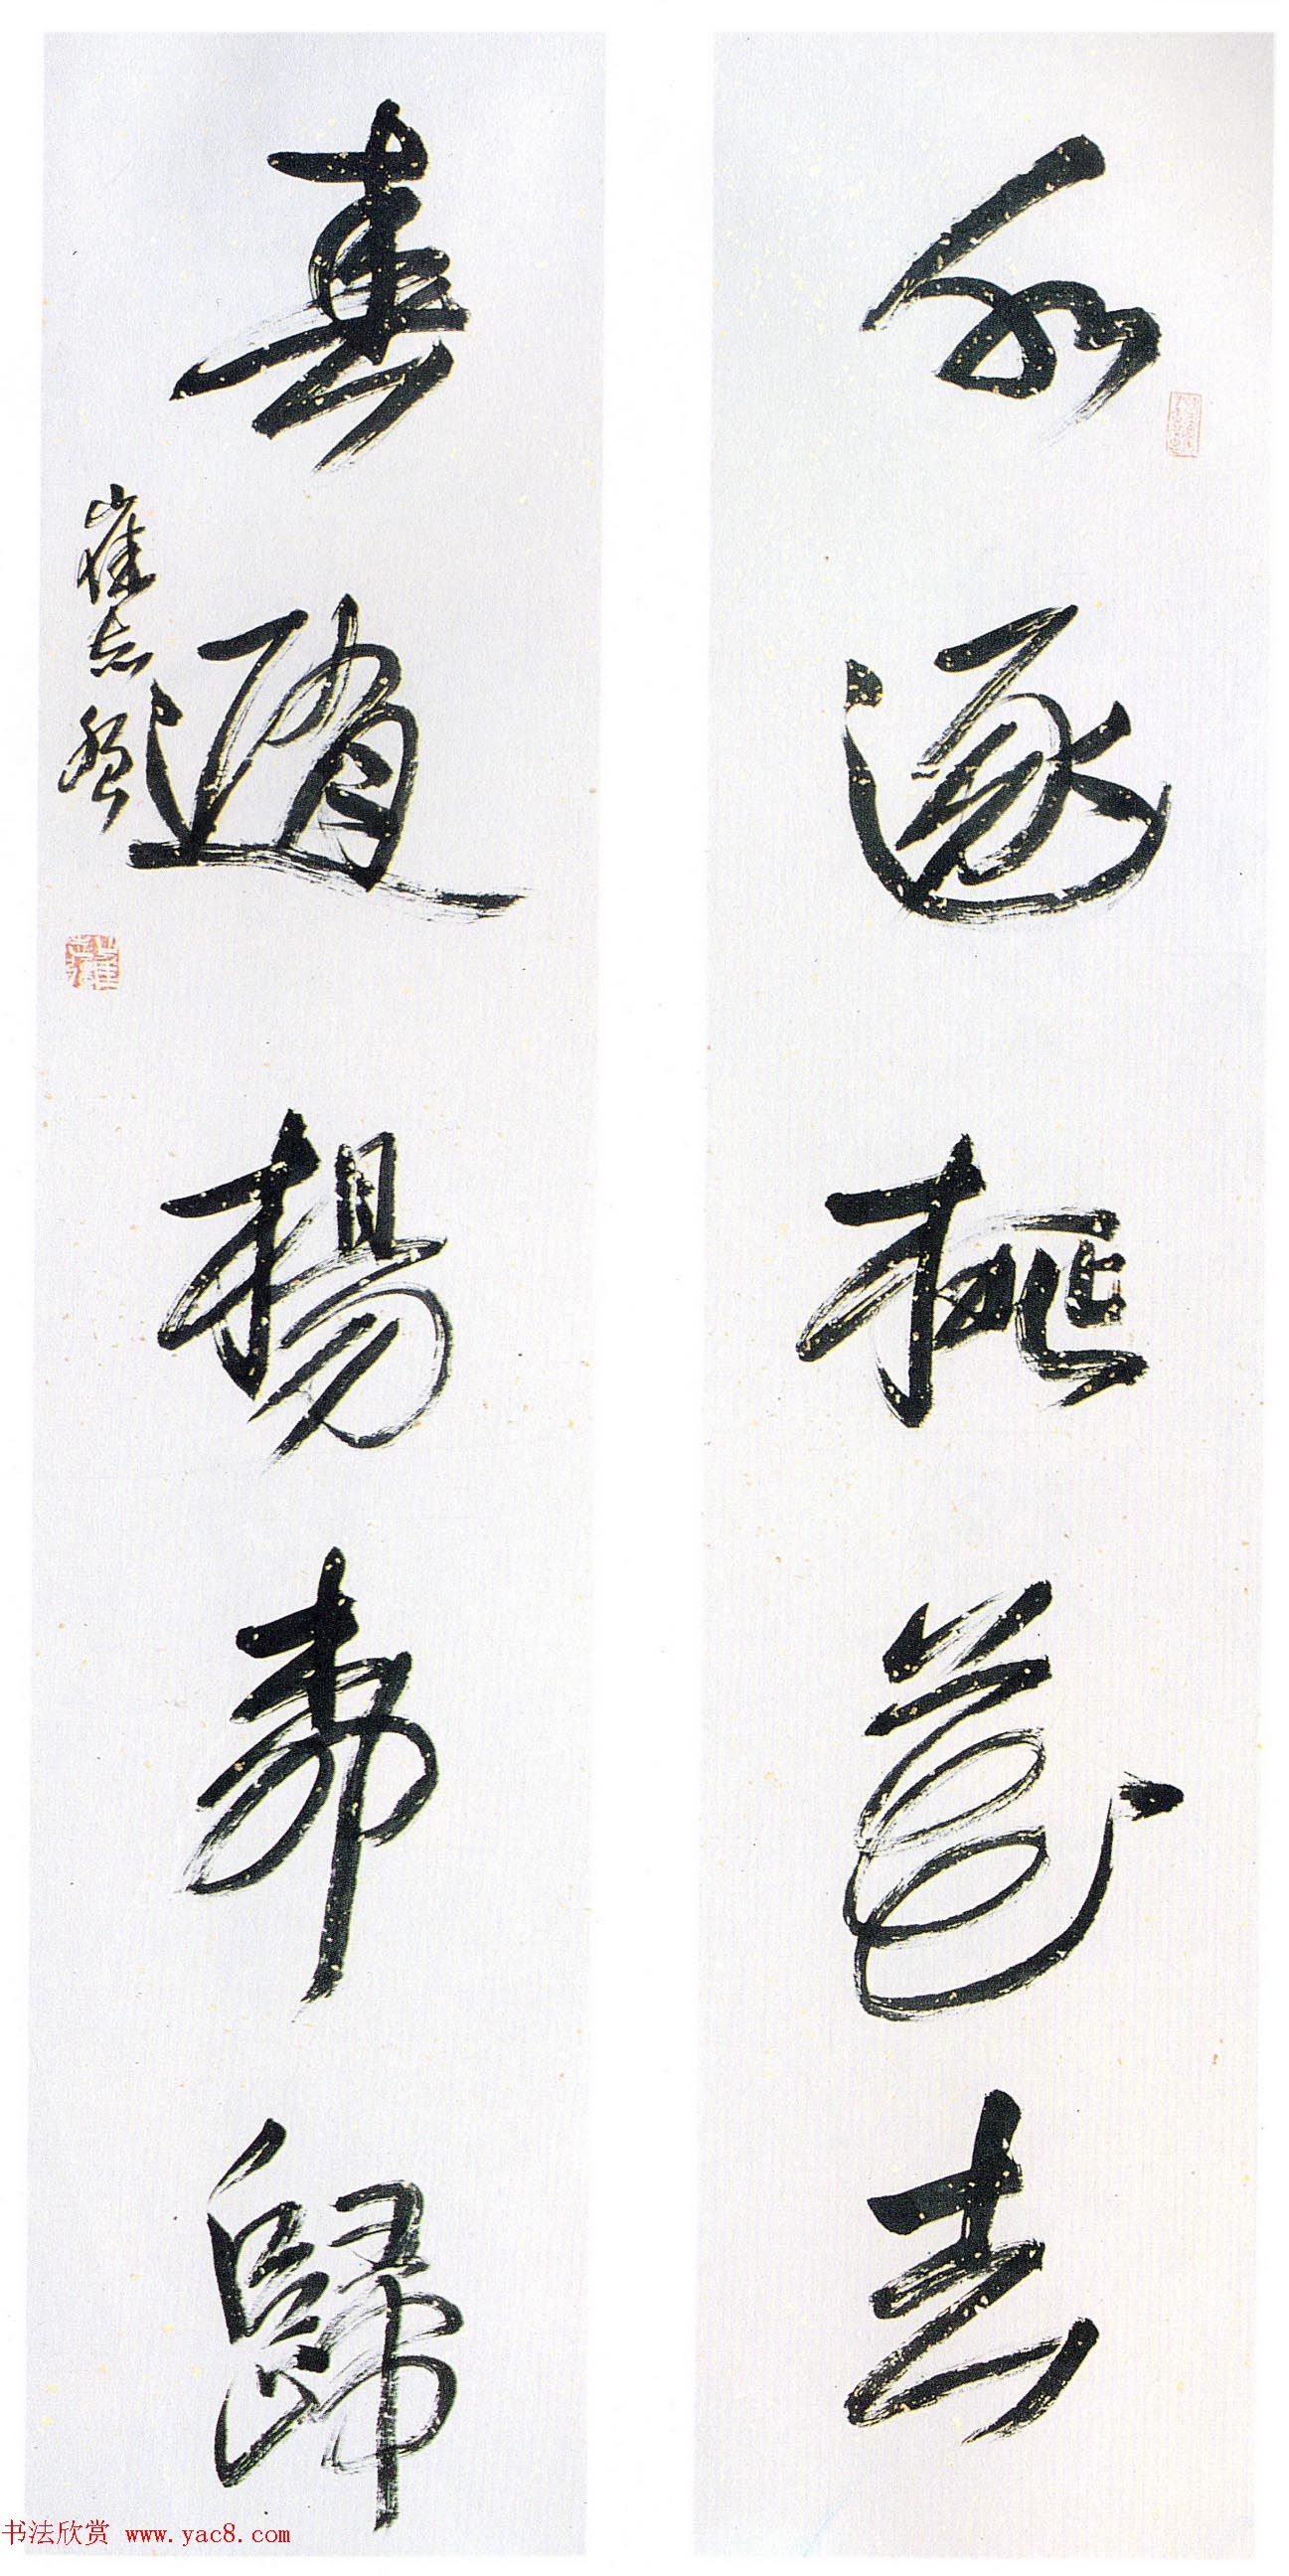 水逐桃花去
春随楊柳歸
崔志強
书法欣赏 www.yac8.com